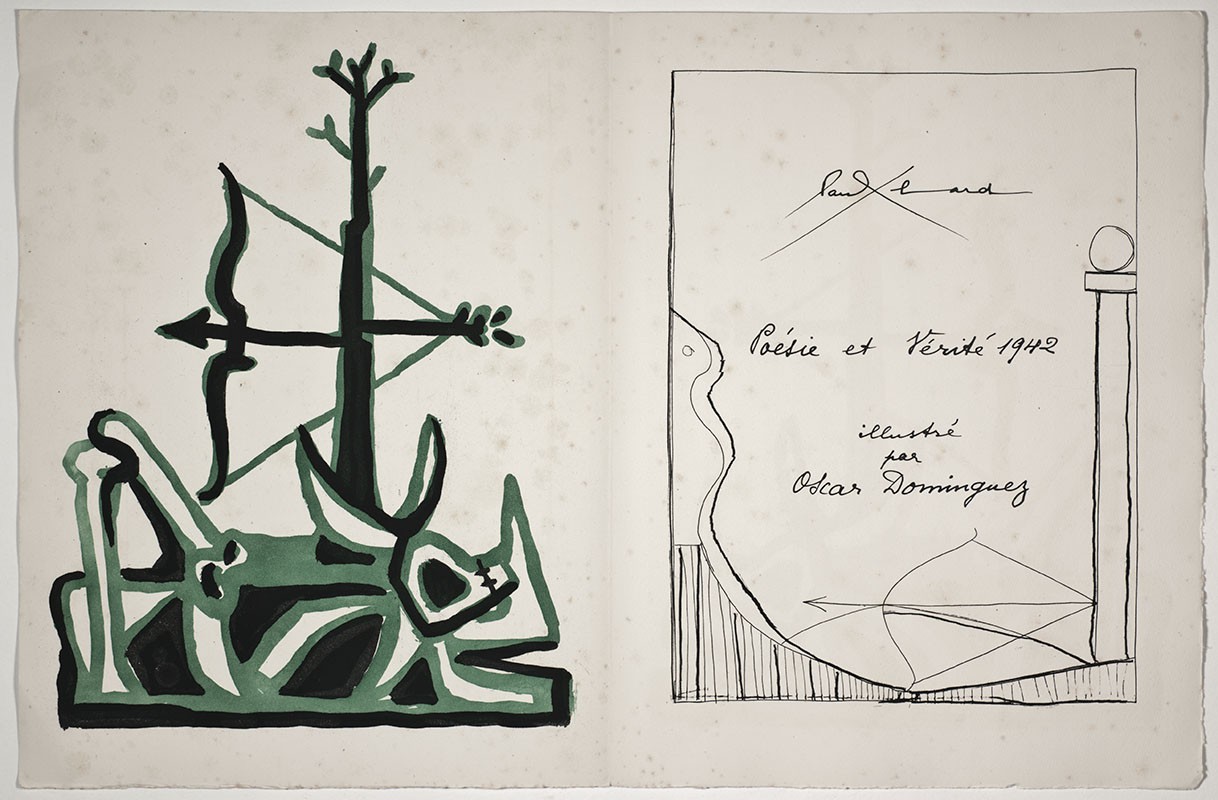 Paul Eluard
Poésie et Vérité 1942
illustré
par
Oscar Dominguez